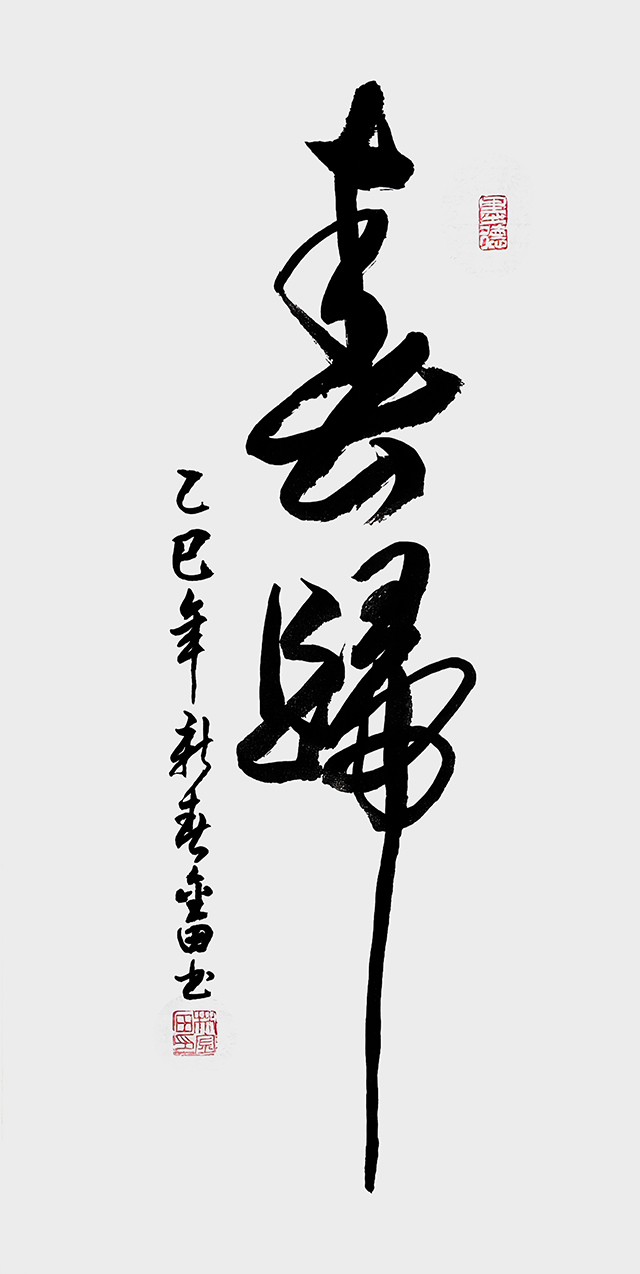 春歸
乙巳年新春金田书